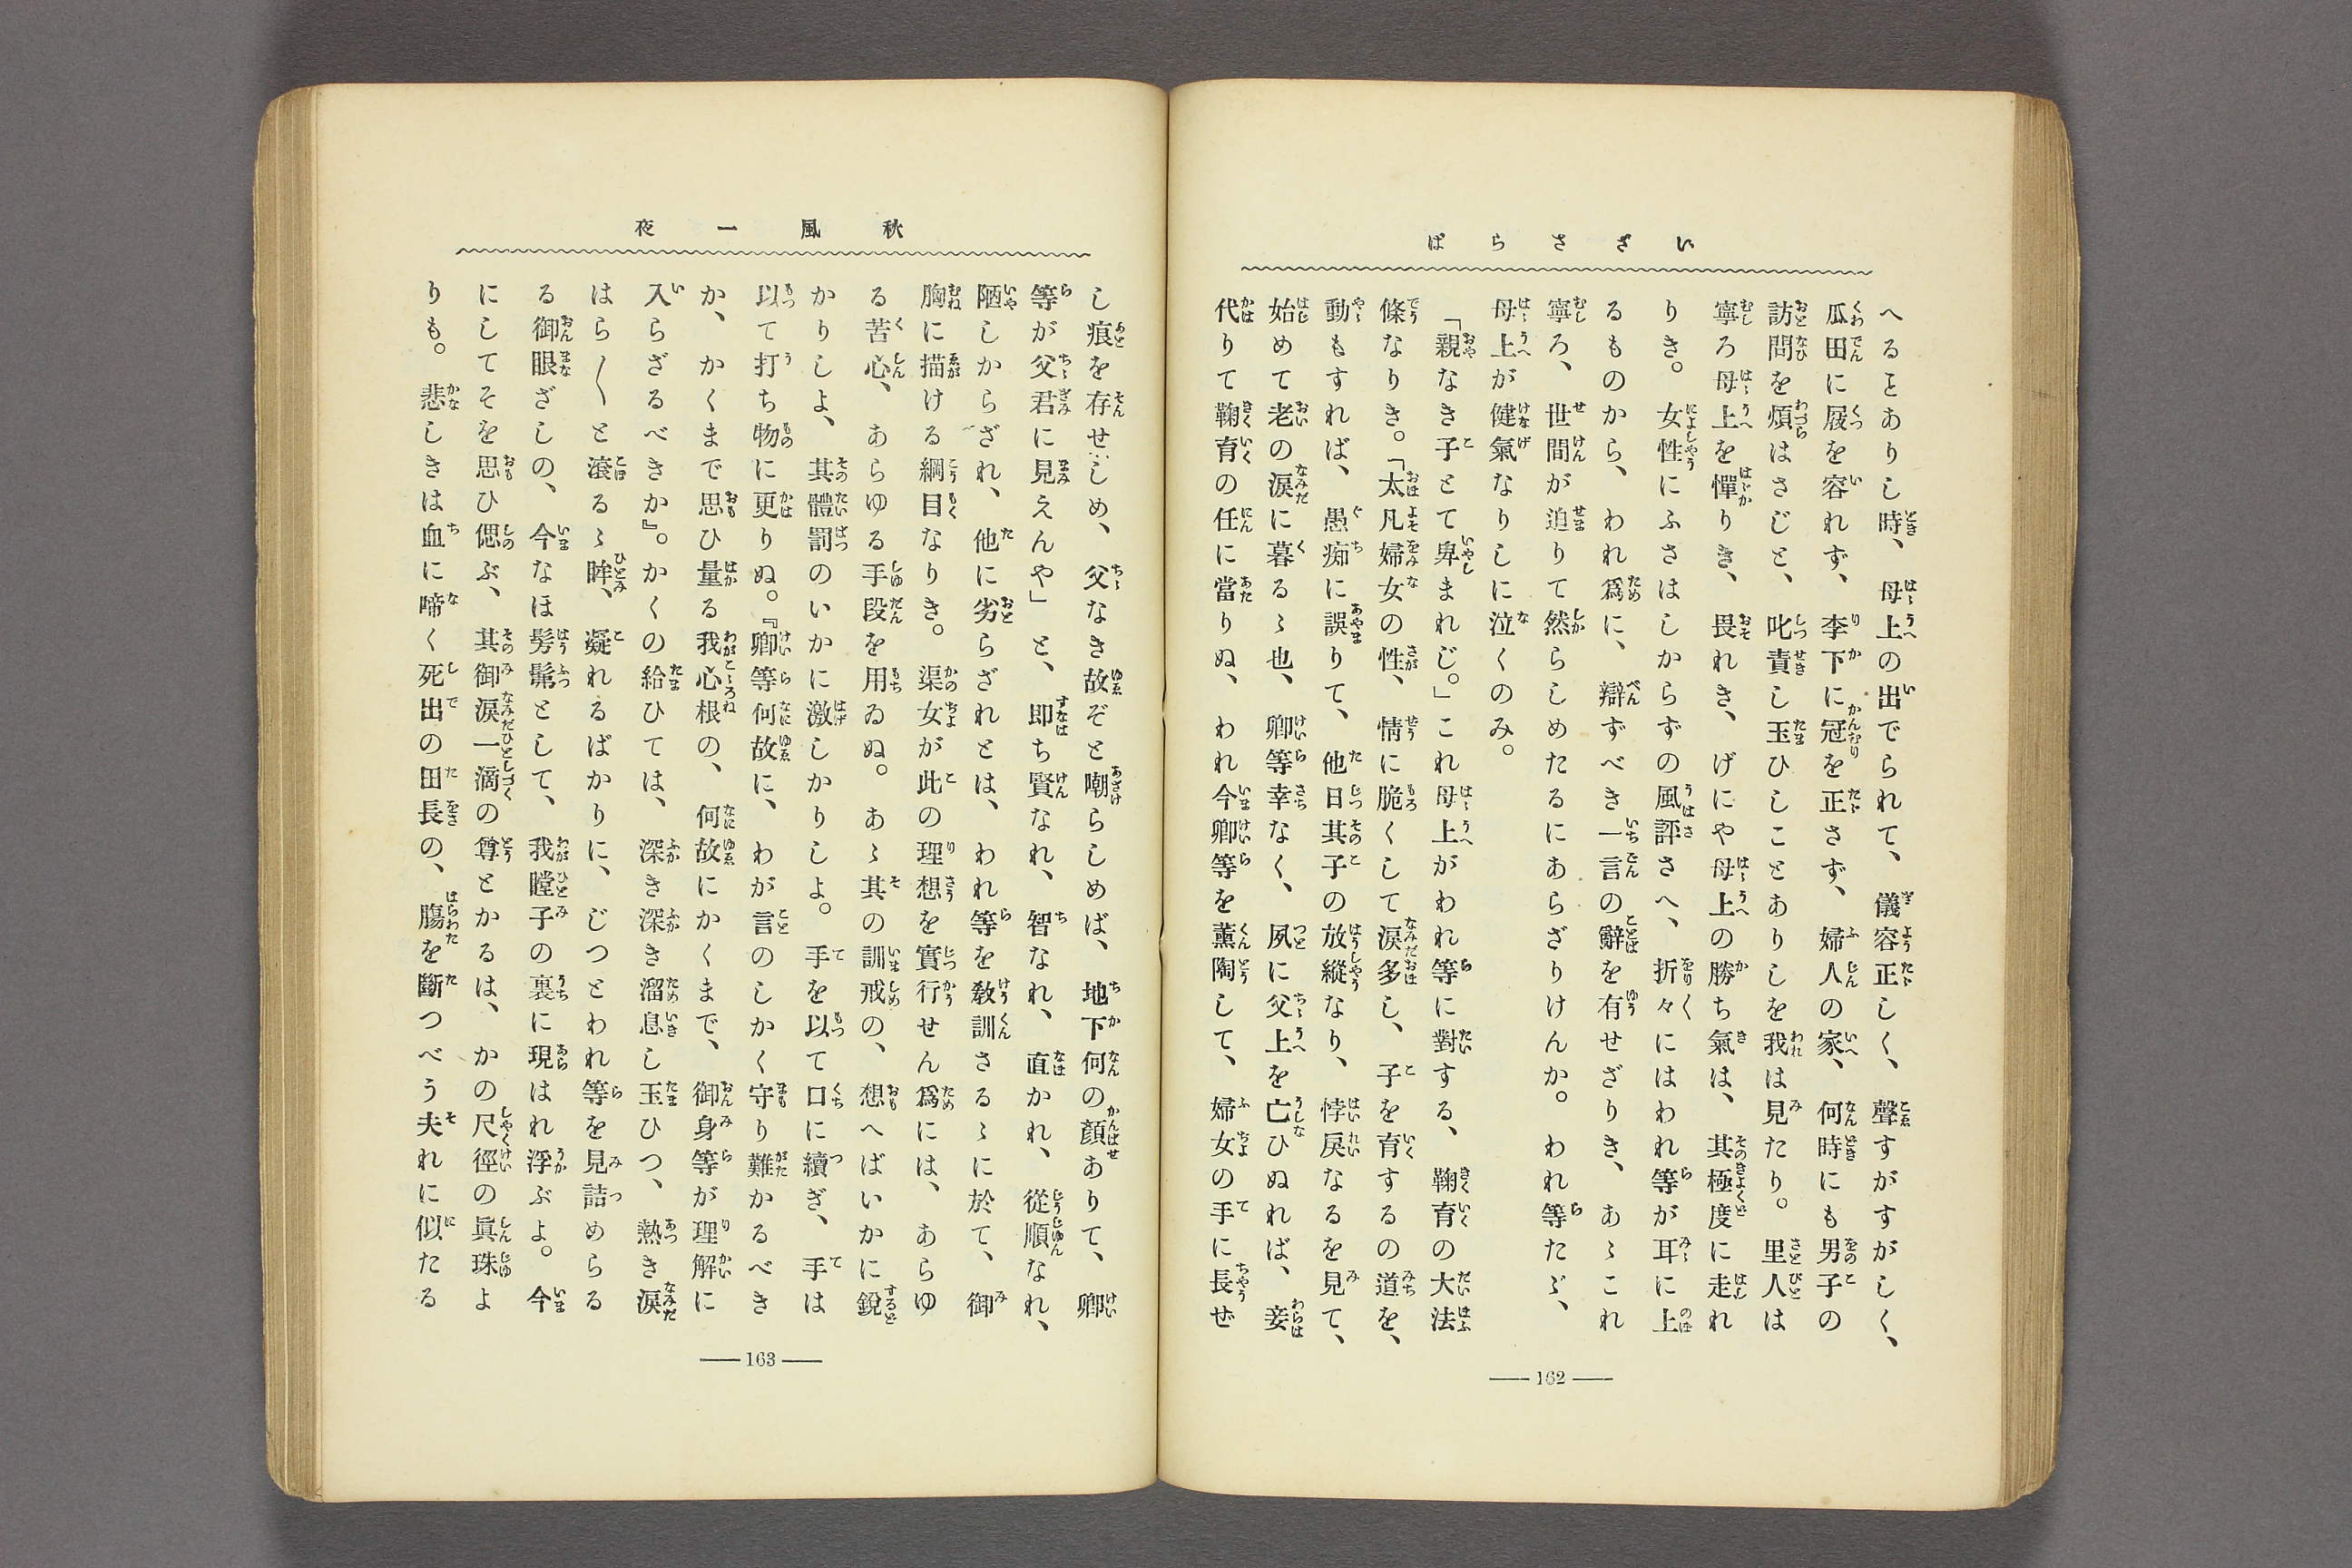 いざさらば
へるとありし時、母上の出でられて、儀容正しく、聲すがすがしく、
瓜田に履を容れず、李下に冠を正さず、婦人の家、何時にも男子の
訪問を煩はさじと、叱責し玉ひしことありしを我は見たり。里人は
寧ろ母上を憚りき、畏れき、げにや母上の勝ち氣は、其極度に走れ
りき。女性にふさはしからずの風評さへ、折々にはわれ等が耳に上
るものから、われ爲に、辯ずべき一言の辭を有せざりき、あゝこれ
寧ろ、世間が迫りて然らしめたるにあらざりけんか。われ等たゞ、
母上が健氣なりしに泣くのみ。
「親なき子とて卑まれじ。」これ母上がわれ等に對する、鞠育の大法
條なりき。「太凡婦女の性、情に脆くして涙多し、子を育するの道を、
動もすれば、愚痴に誤りて、他日其子の放縱なり、悖戻なるを見て、
始めて老の涙に暮るゝ也、卿等幸なく、夙に父上を亡ひぬれば、妾
代りて鞠育の任に當りぬ、われ今卿等を薰陶して、婦女の手に長ぜ
162
秋風一夜
し痕を存せしめ、父なき故ぞと嘲らしめば、地下何の顏ありて、卿
等が父君に見えんや」と、即ち賢なれ、智なれ、直かれ、從順なれ、
陋しからざれ、他に劣らざれとは、われ等を教訓さるゝに於て、御
胸に描ける綱目なりき。渠女が此の理想を實行せん爲には、あらゆ
る苦心、あらゆる手段を用ゐぬ。あゝ其の訓戒の、想へばいかに銳
かりしよ、其體罰のいかに激しかりしよ。手を以て口に續ぎ、手は
以て打ち物に更りぬ。『卿等何故に、わが言のしかく守り難かるべき
か、かくまで思ひ量る我心根の、何故にかくまで、御身等が理解に
入らざるべきか』。かくの給ひては、深き深き溜息し玉ひつ、熱き涙
はら〱と滾るゝ眸、凝れるばかりに、じつとわれ等を見詰めらる
る御眼ざしの、今なほ髣髴として、我瞠子の裏に現はれ浮ぶよ。今
にしてそを思ひ偲ぶ、其御涙一滴の尊とかるは、かの尺徑の眞珠よ
りも。悲しきは血に啼く死出の田長の、膓を斷つべう夫れに似たる
163